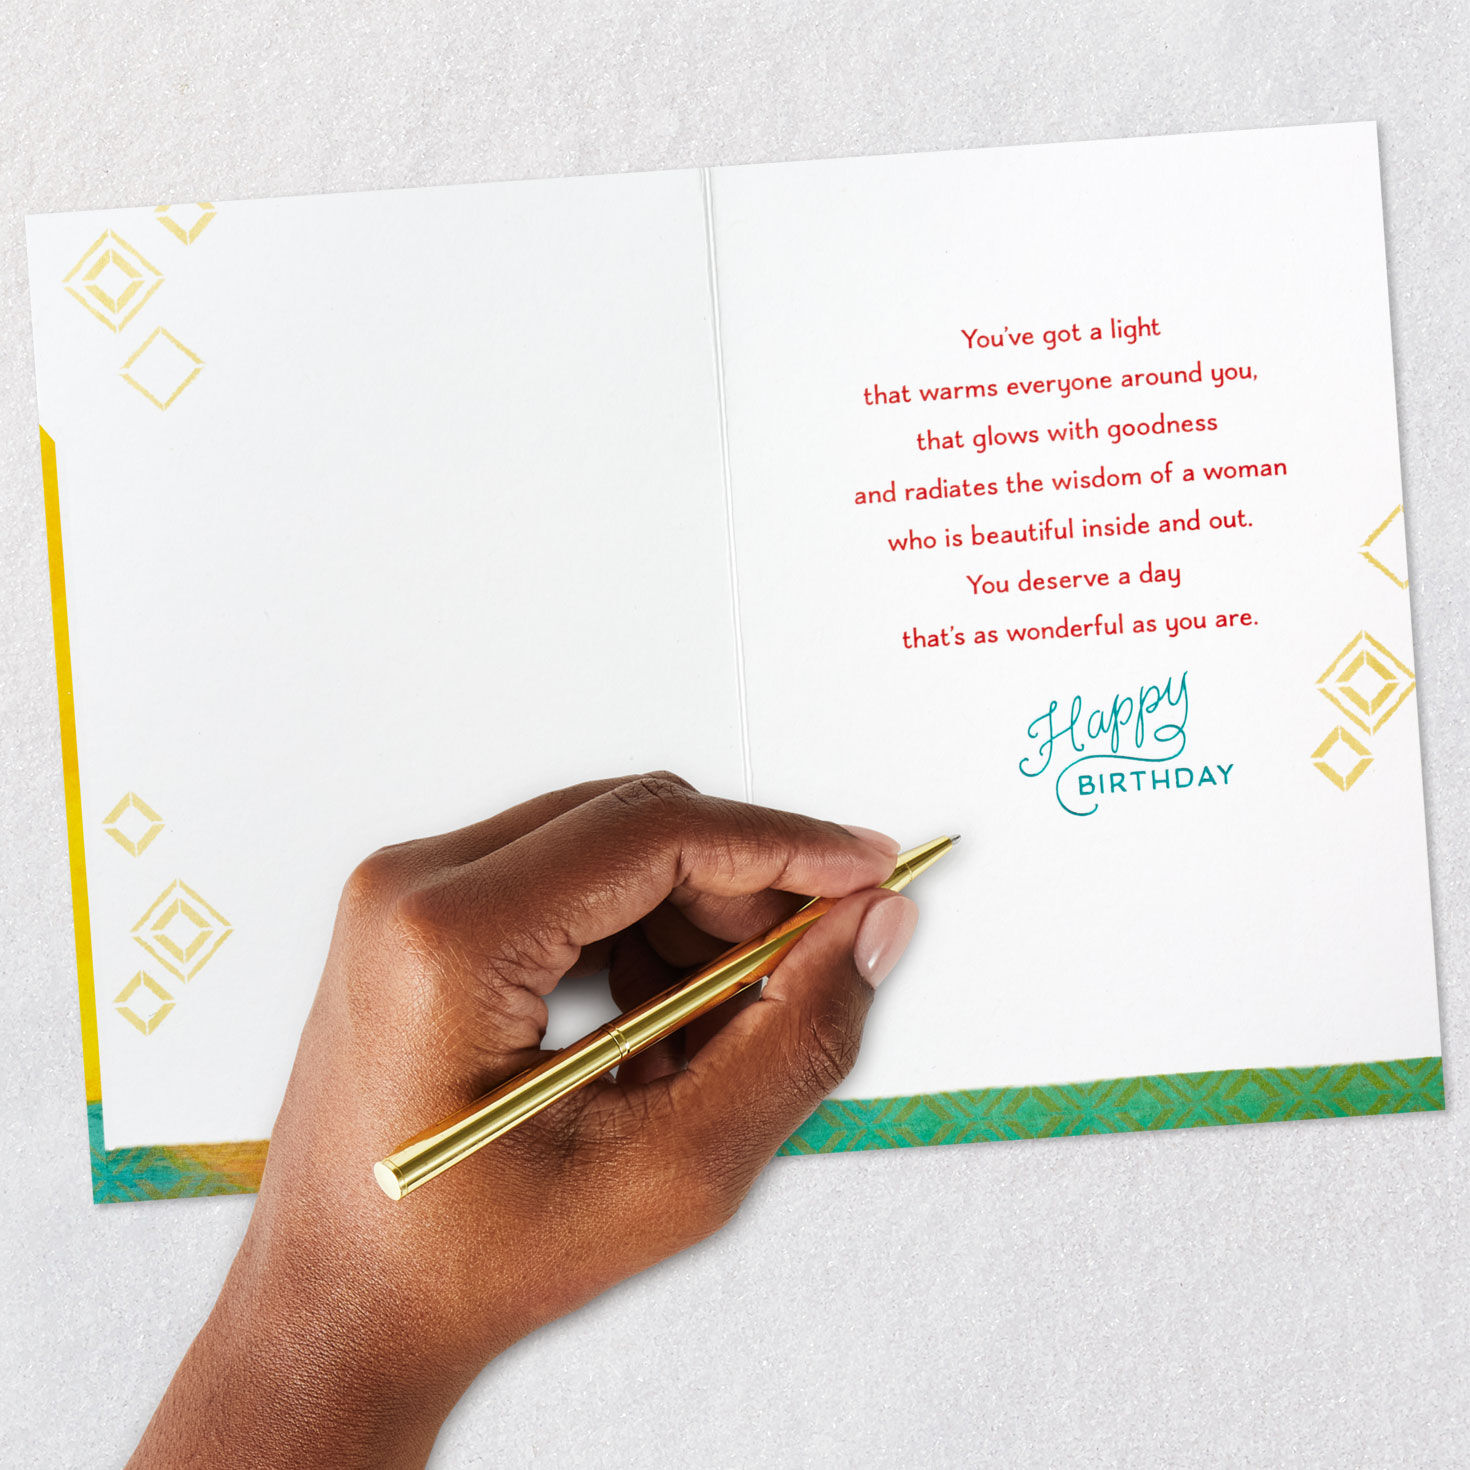 You've got a light
that warms everyone around you,
that glows with goodness
and radiates the wisdom of a woman
who is beautiful inside and out.
You deserve a day
that's as wonderful as you are.
Happy
BIRTHDAY